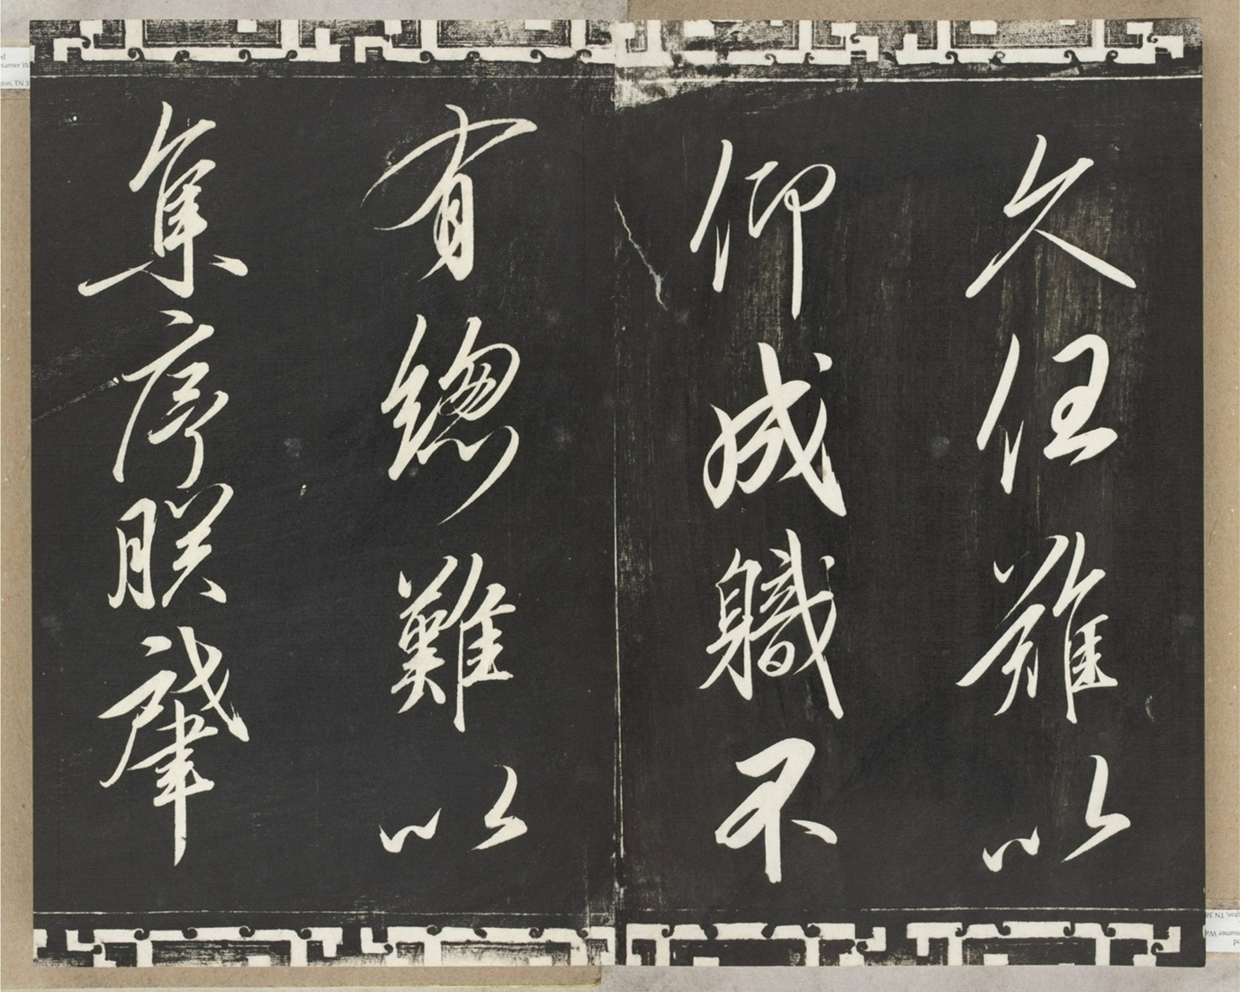 久任難以
仰成職不
有總難以
集序朕肇